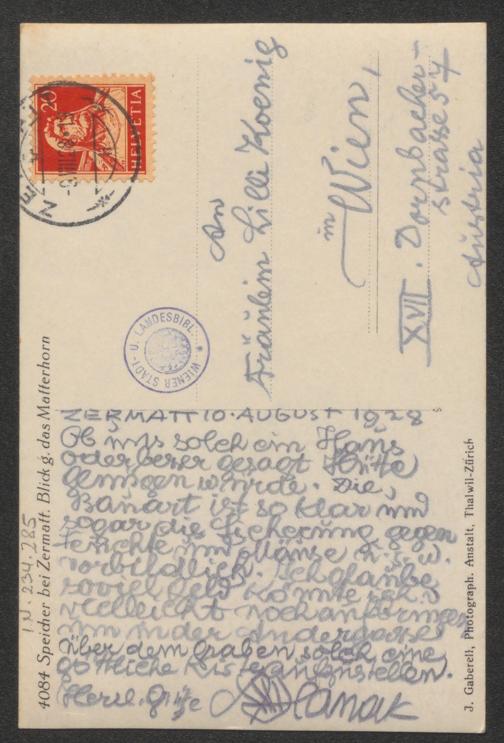 20
HELVETIA
An
Fräulein Lilli Koenig
in
Wien,
XVII. Dornbacher-
strasse 57
Austria
WIENER STADT- U. LANDESBIBL.
ZERMATT 10. AUGUST 1928
Ob uns solch ein Haus
oder besser gesagt Hütte
genügen würde. Die
Bauart ist so klar und
sogar die Sicherung gegen
Feuchte und Mäuse u.s.w.
vorbildlich. Ich glaube
soviel Geld könnte ich
vielleicht noch aufbringen
um in der
über dem Graben solch eine
göttliche Kiste aufzustellen.
Herzl. Grüße Hanak
I.N. 234.285
4084 Speicher bei Zermatt. Blick g. das Matterhorn
J. Gaberell, Photograph. Anstalt, Thalwil-Zürich